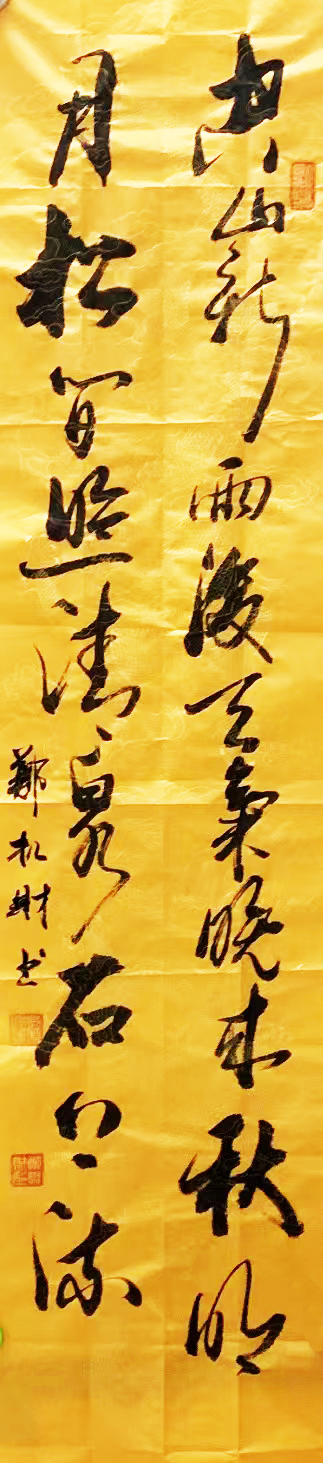 空山新雨後天氣晚来秋明
月松間照清泉石上流
鄭 財书